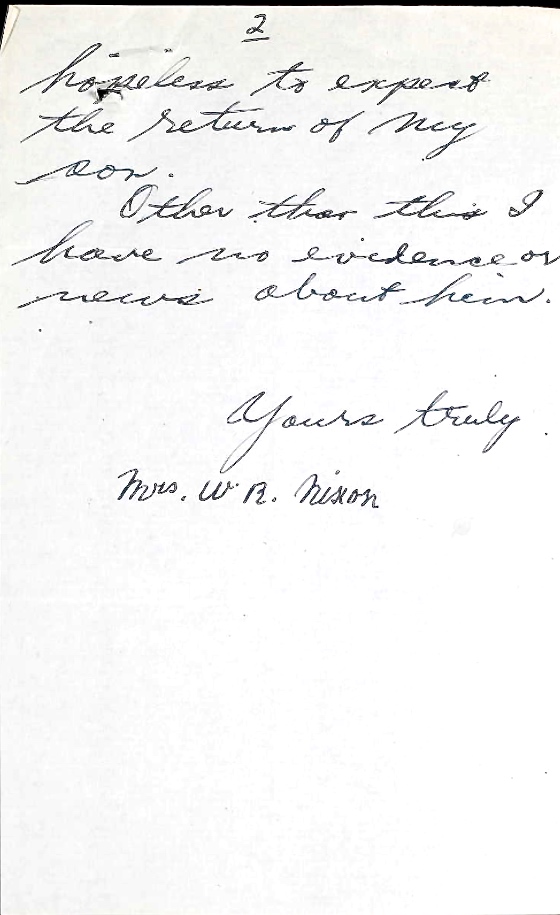 2
hopeless to expect
the return of my
son.
Other than this I
have no evidence or
news about him.
Yours truly
Mrs. W. R. Nixon